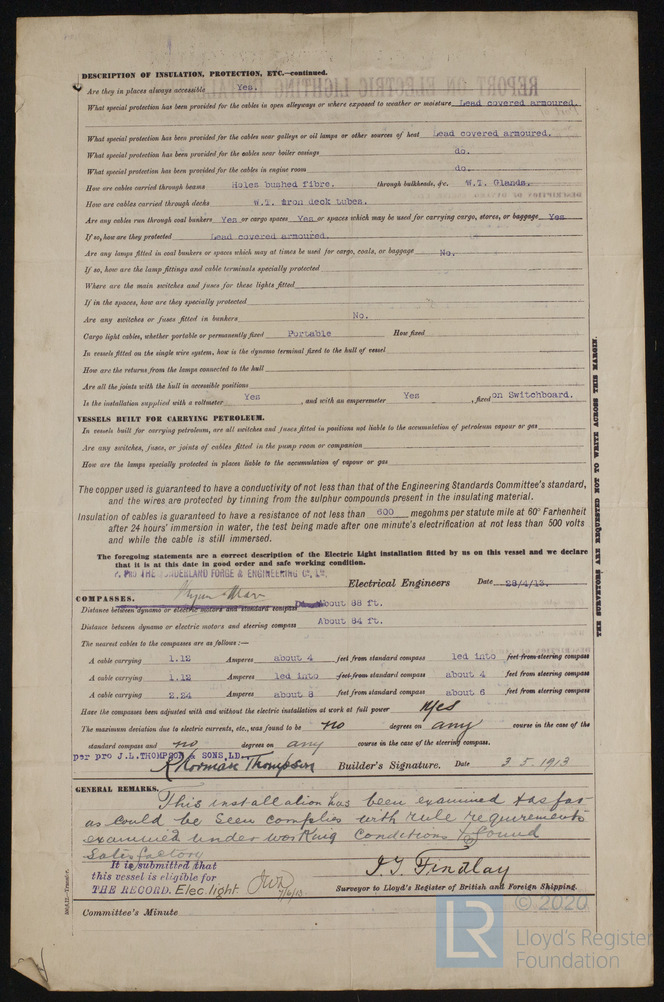 DESCRIPTION OF INSULATION, PROTECTION, ETC.—continued.
Are they in places always accessible Yes.
What special protection has been provided for the cables in open alleyways or where exposed to weather or moisture Lead covered armoured.
What special protection has been provided for the cables near galleys or oil lamps or other sources of heat Lead covered armoured.
What special protection has been provided for the cables near boiler casings do.
What special protection has been provided for the cables in engine room do.
How are cables carried through beams Holes bushed fibre. through bulkheads, &c. W.T. Glands.
How are cables carried through decks W.T. iron deck tubes.
Are any cables run through coal bunkers Yes or cargo spaces Yes or spaces which may be used for carrying cargo, stores, or baggage Yes
If so, how are they protected Lead covered armoured.
Are any lamps fitted in coal bunkers or spaces which may at times be used for cargo, coals, or baggage No.
If so, how are the lamp fittings and cable terminals specially protected
Where are the main switches and fuses for these lights fitted
If in the spaces, how are they specially protected
Are any switches or fuses fitted in bunkers No.
Cargo light cables, whether portable or permanently fixed Portable How fixed
In vessels fitted on the single wire system, how is the dynamo terminal fixed to the hull of vessel
How are the returns from the lamps connected to the hull
Are all the joints with the hull in accessible positions
Is the installation supplied with a voltmeter Yes, and with an amperemeter Yes, fixed on Switchboard.
VESSELS BUILT FOR CARRYING PETROLEUM.
In vessels built for carrying petroleum, are all switches and fuses fitted in positions not liable to the accumulation of petroleum vapour or gas
Are any switches, fuses, or joints of cables fitted in the pump room or companion
How are the lamps specially protected in places liable to the accumulation of vapour or gas
The copper used is guaranteed to have a conductivity of not less than that of the Engineering Standards Committee's standard,
and the wires are protected by tinning from the sulphur compounds present in the insulating material.
Insulation of cables is guaranteed to have a resistance of not less than 600 megohms per statute mile at 60° Farhenheit
after 24 hours' immersion in water, the test being made after one minute's electrification at not less than 500 volts
and while the cable is still immersed.
The foregoing statements are a correct description of the Electric Light installation fitted by us on this vessel and we declare
that it is at this date in good order and safe working condition.
P. PRO THE SUNDERLAND FORGE & ENGINEERING Co., Ld.
Electrical Engineers Date 28/4/13.
COMPASSES.
Distance between dynamo or electric motors and standard compass About 88 ft.
Distance between dynamo or electric motors and steering compass About 84 ft.
The nearest cables to the compasses are as follows:—
A cable carrying 1.12 Amperes about 4 feet from standard compass led into feet from steering compass
A cable carrying 1.12 Amperes led into feet from standard compass about 4 feet from steering compass
A cable carrying 2.24 Amperes about 8 feet from standard compass about 6 feet from steering compass
Have the compasses been adjusted with and without the electric installation at work at full power Yes
The maximum deviation due to electric currents, etc., was found to be no degrees on any course in the case of the
standard compass and no degrees on any course in the case of the steering compass.
per pro J.L. THOMPSON & SONS, LD.
R Norman Thompson Builder's Signature. Date 3.5.1913
GENERAL REMARKS.
This installation has been examined & as far
as could be seen complies with rule requirements
examined under working conditions & found
satisfactory
It is submitted that
this vessel is eligible for
THE RECORD. Elec. light JWD 7/6/13
J. G. Findlay
Surveyor to Lloyd's Register of British and Foreign Shipping.
Committee's Minute
THE SURVEYORS ARE REQUESTED NOT TO WRITE ACROSS THIS MARGIN.
© 2020
LR
Lloyd's Register
Foundation